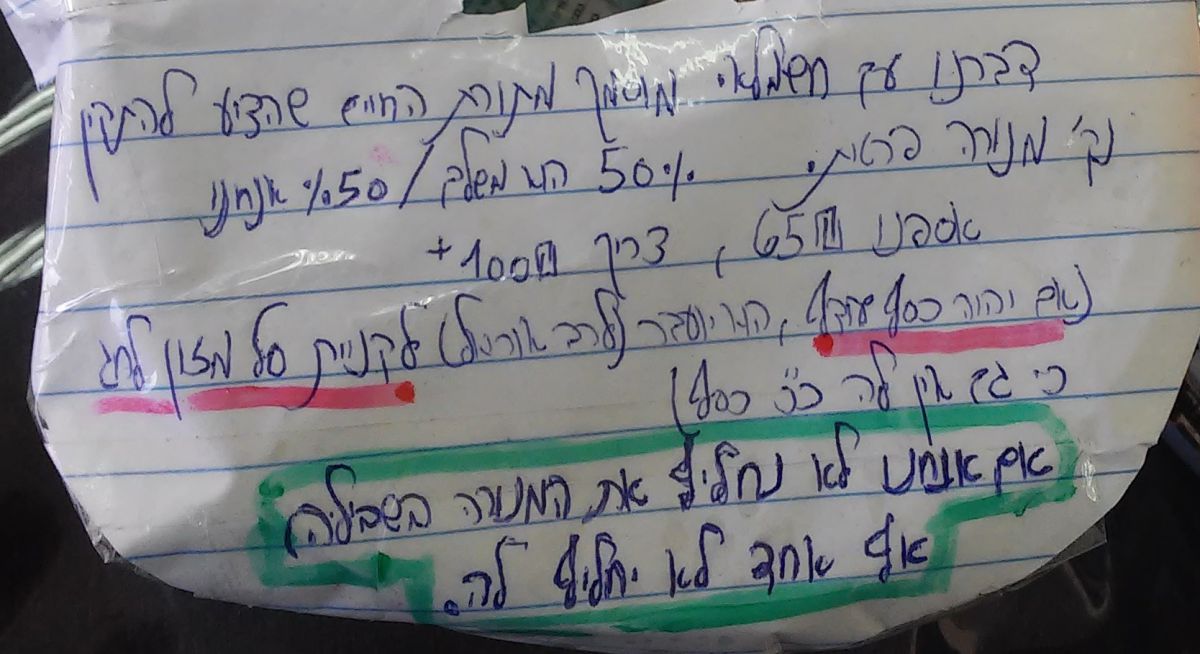 דברנו עם חשמלאי מוסמך מתורת החיים שהציע להתקין
נק' מנורה פרטית. 50% הוא משלם / 50% אנחנו
אספנו 65₪, צריך 100₪+
(אם יהיה כסף עודף, הוא יועבר לקניית סל מזון לחג
כי גם אין לה כ"כ כסף)
אם אנחנו לא נחליף את המנורה בשבילה,
אף אחד לא יחליף לה.